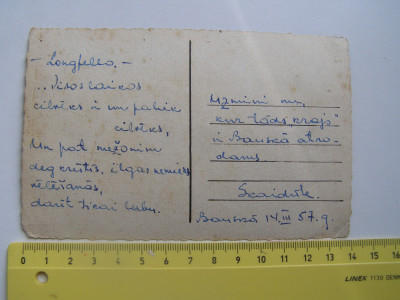 - Longfello. -
"Visos laikos
cilvēks ir un paliek
cilvēks,
Un pat mežonim
deg krūtīs, ilgas nemiers
vēlēšanās,
darīt tikai labu.
Uzmini nu,
kur tāds "krajs"
ir Bauskā atro-
dams.
Skaidrīte.
Bauskā 14.III 57. g.
0 1 2 3 4 5 6 7 8 9 10 11 12 13 14 15 16
LINEX 1130 DENM